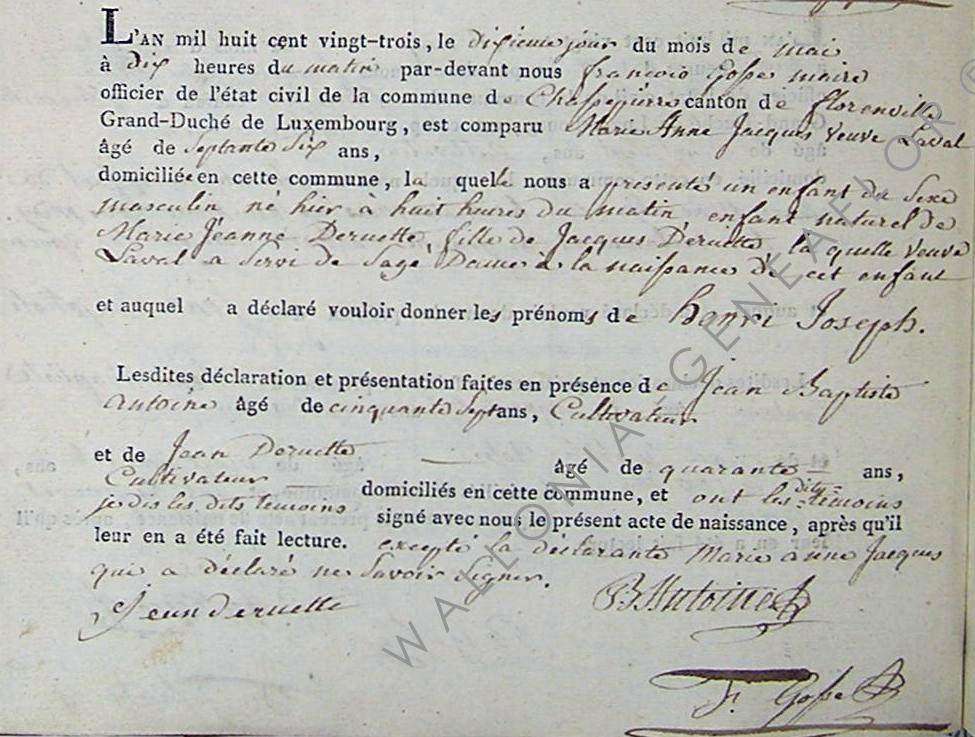 L'AN mil huit cent vingt-trois, le dixieme jour du mois de mai
à dix heures du matin par-devant nous françois Gosse maire
officier de l'état civil de la commune de Chassepierre canton de florenville
Grand-Duché de Luxembourg, est comparu Marie Anne Jacques Veuve Laval
âgé de Septante Six ans,
domiciliée en cette commune, la quelle nous a présenté un enfant du Sexe
masculin né hier à huit heures du matin enfant naturel de
Marie Jeanne Deruette, fille de Jacques Deruette, la quelle veuve
Laval a Servi de Sage Dame à la naissance de cet enfant
et auquel a déclaré vouloir donner les prénoms de henri Joseph.
Lesdites déclaration et présentation faites en présence de Jean Baptiste
antoine âgé de cinquante Sept ans, Cultivateur
et de Jean Deruette — âgé de quarante — ans,
Cultivateur — domiciliés en cette commune, et ont les dits témoins
je dis les dits temoins signé avec nous le présent acte de naissance, après qu'il
leur en a été fait lecture. excepté la déclarante Marie anne Jacques
qui a déclaré ne Savoir Signer.
Jean deruette BAntoine
F. Gosse
WALLONIA GENEALOR ©